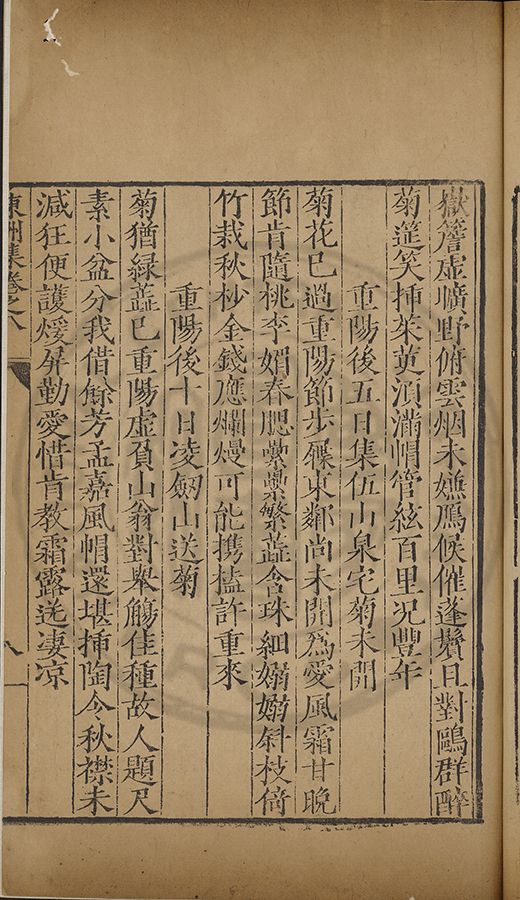 嶽簷虛曠野俯雲烟未嫌鴈候催蓬鬢且對鷗群醉
菊筵笑揷茱萸須滿帽管絃百里况豐年
重陽後五日集伍山泉宅菊未開
菊花已過重陽節步屧東鄰尚未開爲愛風霜甘晚
節肯隨桃李媚春腮纍纍繁蕋含珠細嫋嫋斜枝倚
竹栽秋杪金錢應爛熳可能携榼許重來
重陽後十日凌劒山送菊
菊猶綠蕋已重陽虛負山翁對舉觴佳種故人題尺
素小盆分我借餘芳孟嘉風帽還堪揷陶令秋襟未
減狂便護煖屏勤愛惜肯教霜露送凄凉
東洲集卷之八
八